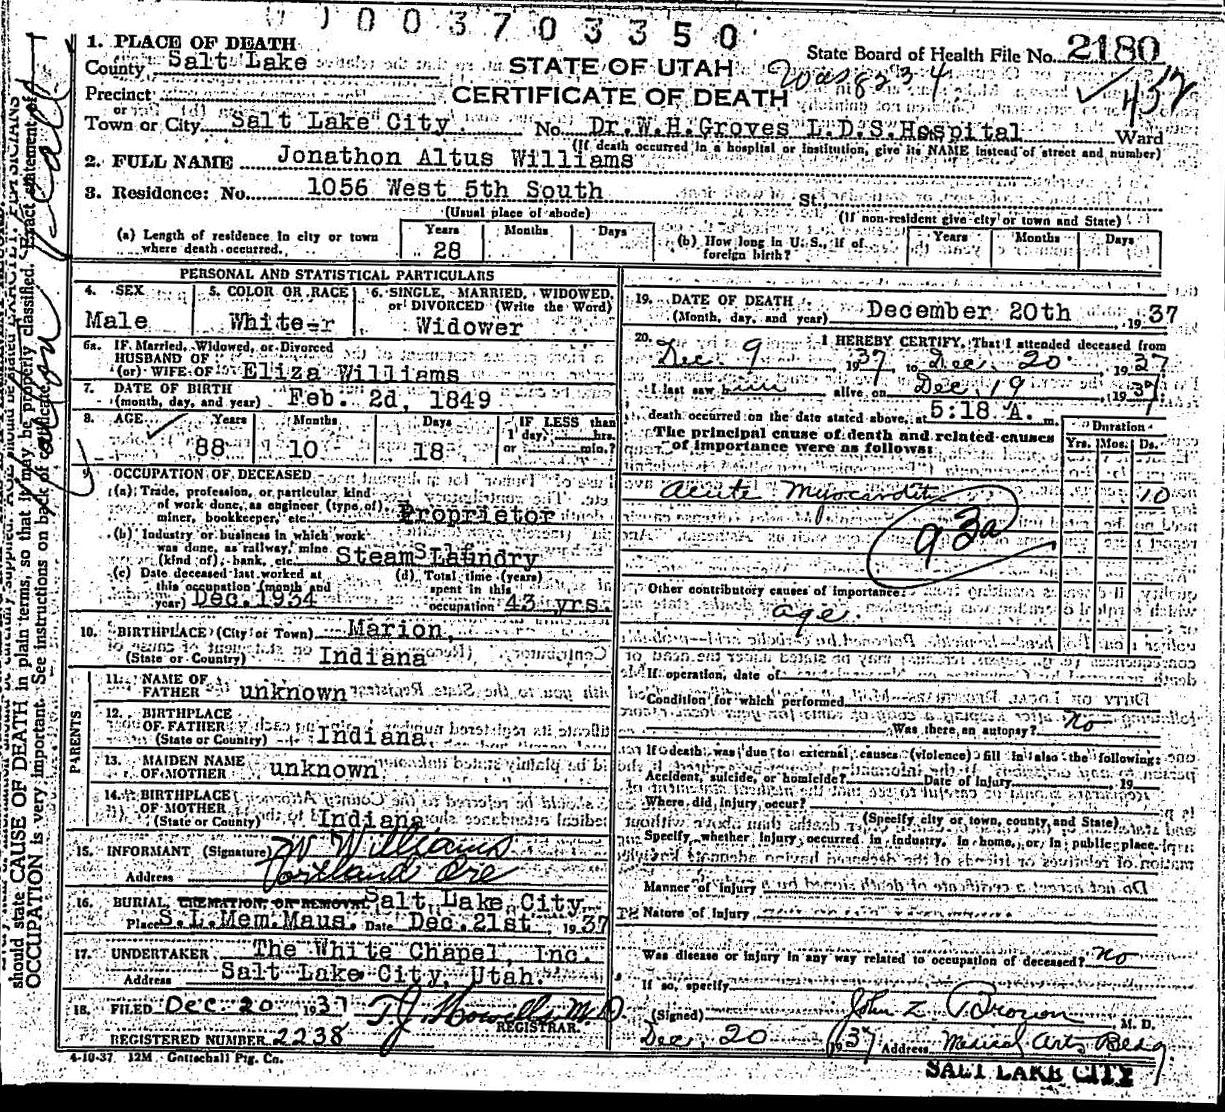 003703350
1. PLACE OF DEATH
State Board of Health File No. 2180
County Salt Lake
STATE OF UTAH
Precinct
CERTIFICATE OF DEATH
or
Town or City Salt Lake City No. Dr. W.H. Groves L.D.S. Hospital Ward
(If death occurred in a hospital or institution, give its NAME instead of street and number)
2. FULL NAME Jonathon Altus Williams
3. Residence: No. 1056 West 5th South St.
(Usual place of abode)
(If non-resident give city or town and State)
(a) Length of residence in city or town where death occurred. Years 28 Months Days
(b) How long in U. S., if of foreign birth? Years Months Days
PERSONAL AND STATISTICAL PARTICULARS
4. SEX Male
5. COLOR OR RACE White-r
6. SINGLE, MARRIED, WIDOWED, or DIVORCED (Write the Word) Widower
6a. IF Married, Widowed, or Divorced
HUSBAND OF
(or) WIFE OF Eliza Williams
7. DATE OF BIRTH
(month, day, and year) Feb. 2d, 1849
8. AGE Years 88 Months 10 Days 18 IF LESS than 1 day, hrs. or min.?
9. OCCUPATION OF DECEASED
(a) Trade, profession, or particular kind
of work done, as engineer (type of)
miner, bookkeeper, etc. Proprietor
(b) Industry or business in which work
was done, as railway, mine
(kind of), bank, etc. Steam Laundry
(c) Date deceased last worked at this occupation (month and year) Dec. 1934
(d) Total time (years) spent in this occupation 43 yrs.
10. BIRTHPLACE (City or Town) Marion,
(State or Country) Indiana
PARENTS
11. NAME OF FATHER unknown
12. BIRTHPLACE OF FATHER
(State or Country) Indiana
13. MAIDEN NAME OF MOTHER unknown
14. BIRTHPLACE OF MOTHER
(State or Country) Indiana
15. INFORMANT (Signature) W Williams
Address Portland Ore
16. BURIAL, CREMATION, OR REMOVAL Salt Lake City
Place S.L. Mem. Maus. Date Dec. 21st, 1937
17. UNDERTAKER The White Chapel, Inc.
Address Salt Lake City, Utah.
18. FILED Dec. 20 1937 T. J. Howells M.D.
REGISTRAR.
REGISTERED NUMBER 2238
4-10-37 12M Gottschall Ptg. Co.
19. DATE OF DEATH
(Month, day, and year) December 20th, 1937
20. I HEREBY CERTIFY, That I attended deceased from
Dec. 9 1937 to Dec. 20 1937
I last saw him alive on Dec. 19 1937
death occurred on the date stated above, at 5:18 A. m.
The principal cause of death and related causes
of importance were as follows:
Duration
Yrs. Mos. Ds.
Acute Myocarditis 10
93a
Other contributory causes of importance:
age.
If operation, date of
Condition for which performed
Was there an autopsy? No
If death was due to external causes (violence) fill in also the following:
Accident, suicide, or homicide? Date of Injury 19
Where did injury occur?
(Specify city or town, county and State)
Specify whether injury occurred in industry, in home, or in public place.
Manner of Injury
Nature of Injury
Was disease or injury in any way related to occupation of deceased? No
If so, specify
(Signed) John Z. Brown M. D.
Dec, 20 1937 Address Medical Arts Bldg
SALT LAKE CITY
should state CAUSE OF DEATH in plain terms, so that it may be properly classified. Exact statement of
OCCUPATION is very important. See instructions on back of certificate.